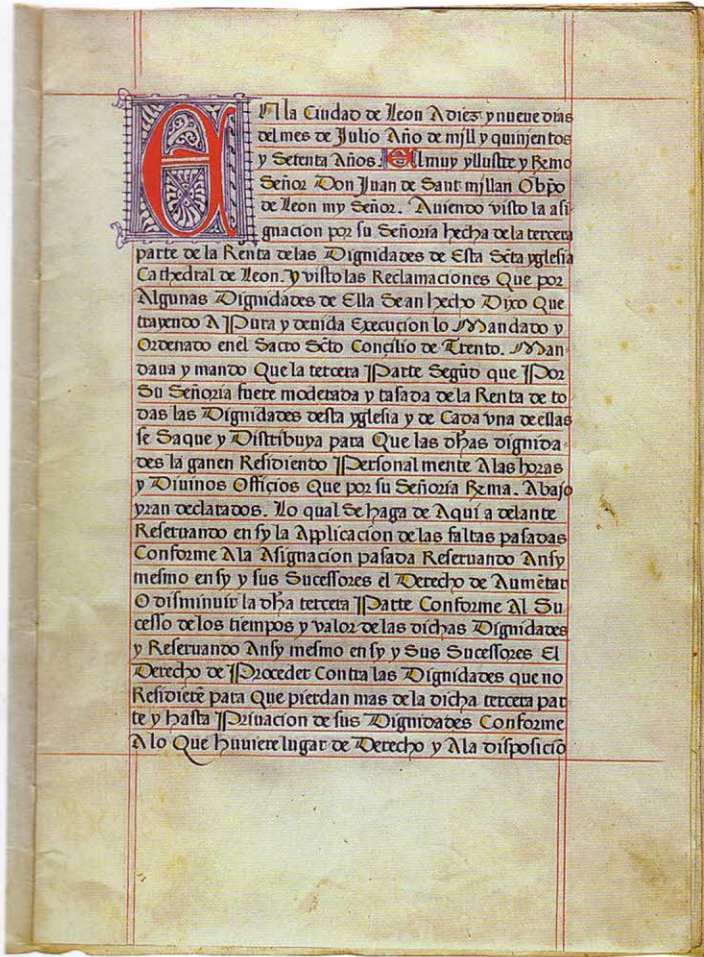 En la Ciudad de Leon A diez y nueue dias
del mes de Julio Año de mjll y quinjentos
y Setenta Años. El muy yllustre y Remo
Señor Don Juan de Sant millan Obpo
de Leon my Señor. Auiendo visto la asi
gnacion por su Señoria hecha de la tercera
parte de la Renta delas Dignidades de Esta Scta yglesia
Cathedral de Leon. y visto las Reclamaciones Que por
Algunas Dignidades de Ella Sean hecho Dixo Que
trayendo A Pura y deuida Execucion lo Mandado y
Ordenado enel Sacro Scto Concilio de Trento. Man
daua y mando Que la tercera Parte Segud que Por
Su Señoria fuere moderada y tasada de la Renta de to
das las Dignidades desta yglesia y de Cada vna de ellas
se Saque y Distribuya para Que las dhas dignida
des la ganen Residiendo Personal mente A las horas
y Diuinos Officios Que por su Señoria Rma. Abajo
yran declarados. Lo qual Se haga de Aqui a delante
Reseruando en sy la Applicacion de las faltas pasadas
Conforme A la Asignacion pasada Reseruando Ansy
mesmo en sy y sus Sucessores el Derecho de Aumētar
O disminuir la dha tercera Parte Conforme Al Su
cesso de los tiempos y valor de las dichas Dignidades
y Reseruando Ansy mesmo en sy y Sus Sucessores El
Derecho de Proceder Contra las Dignidades que no
Residierē para Que pierdan mas de la dicha tercera par
te y hasta Priuacion de sus Dignidades Conforme
A lo Que huuiere lugar de Derecho y A la disposiciō